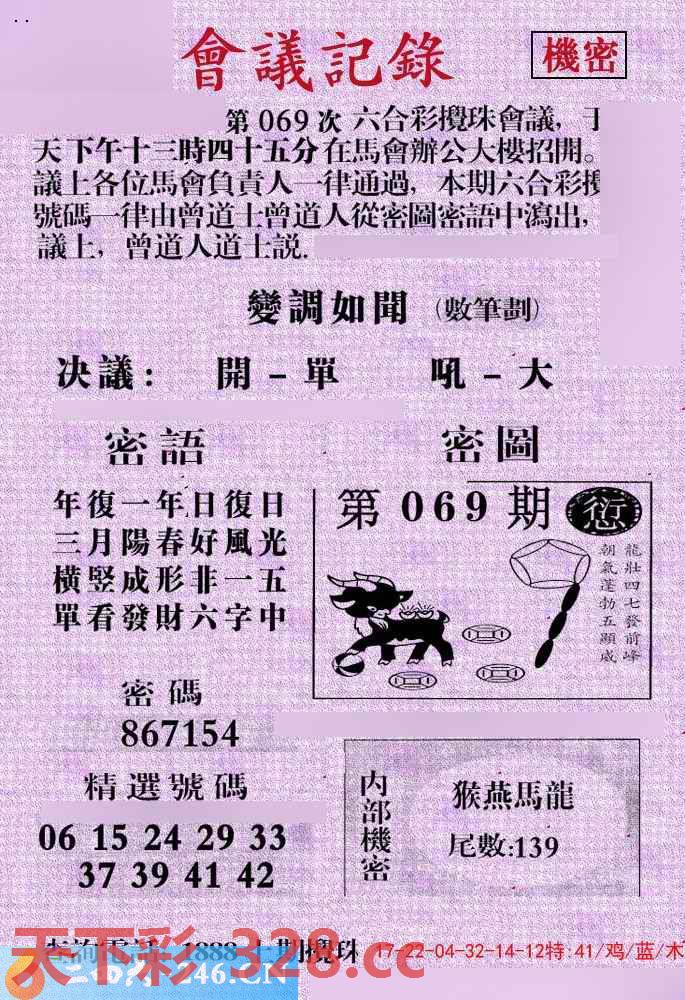 會議記錄
機密
第069次 六合彩攪珠會議，于
天下午十三時四十五分在馬會辦公大樓招開。
議上各位馬會負責人一律通過，本期六合彩攪
號碼一律由曾道士曾道人從密圖密語中瀉出，
議上，曾道人道士説.
變調如聞（數筆劃）
决議： 開－單 吼－大
密語
年復一年日復日
三月陽春好風光
橫竪成形非一五
單看發財六字中
密圖
第069期
愆
龍壯四七發前峰
朝氣蓬勃五顯威
密碼
867154
精選號碼
06 15 24 29 33
37 39 41 42
内部機密
猴燕馬龍
尾數:139
查詢電話：1888 上期攪珠
17-22-04-32-14-12特:41/鸡/蓝/木
天下彩 328.cc
246.CN